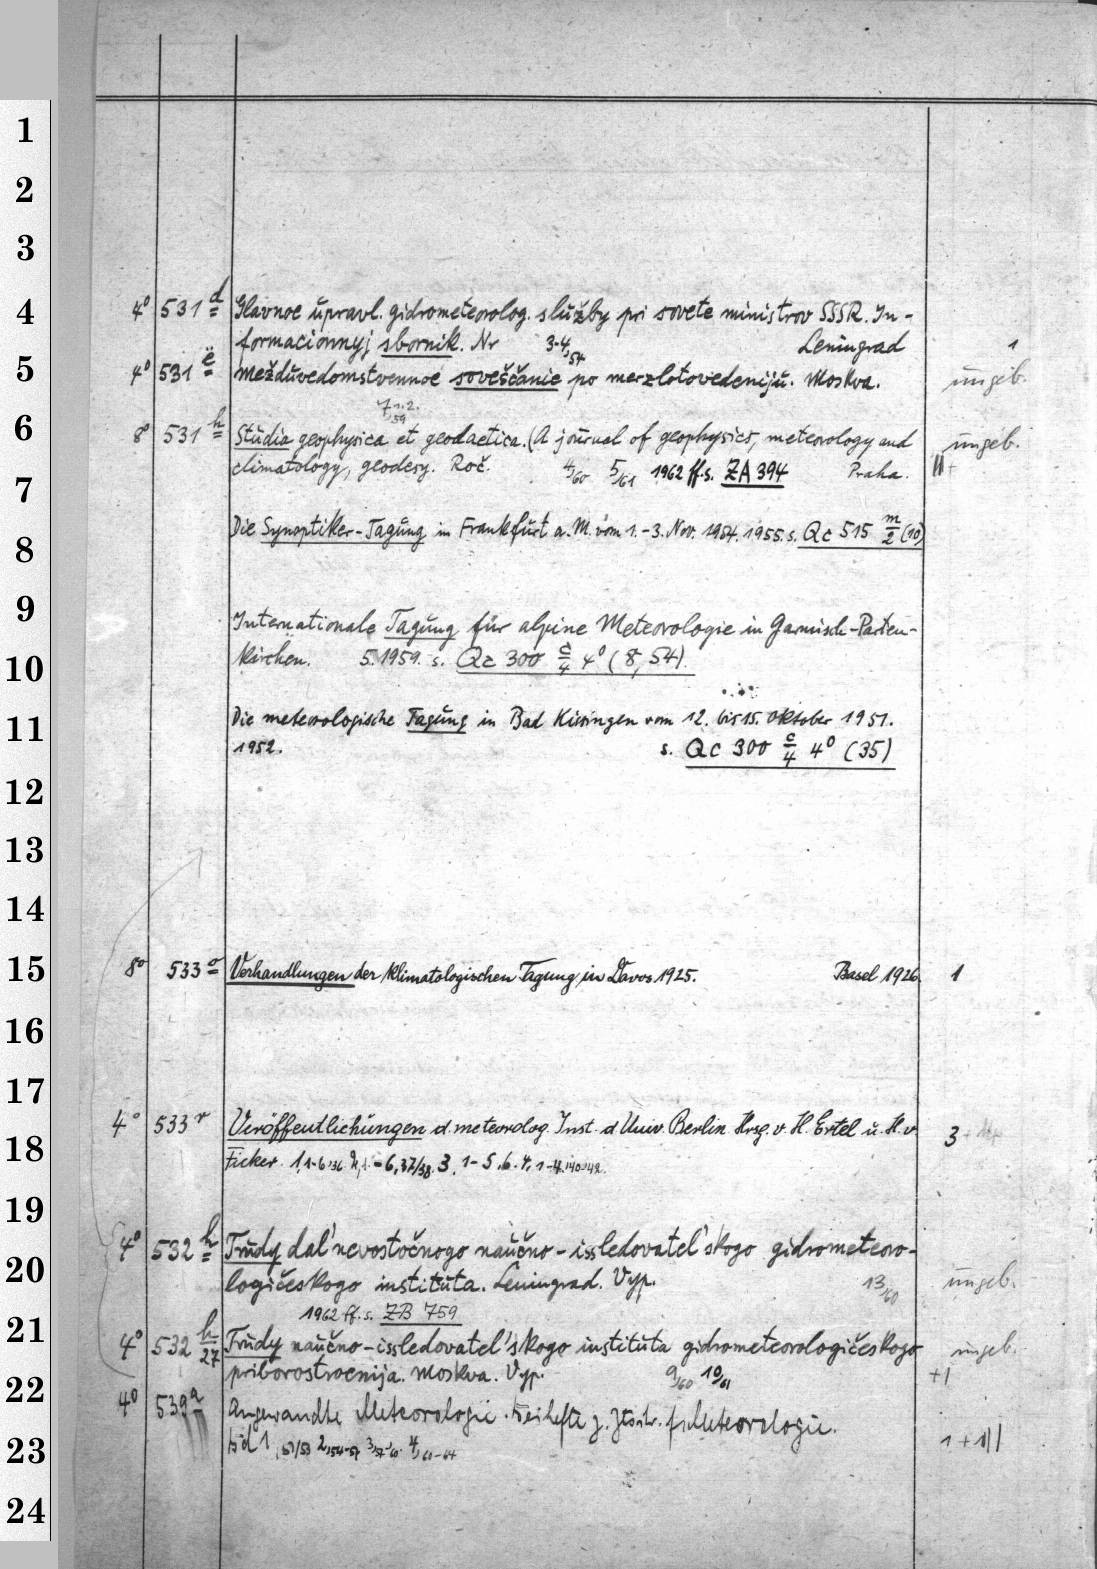 1
2
3
4
4° 531 d Glavnoe upravl. gidrometeorolog. služby pri sovete ministrov SSSR. In-
formacionnyj sbornik. Nr 3-4,54 Leningrad 1
5
4° 531 e Meždůvedomstvennoe soveščanie po merzlotovedeniju. Moskva. ungeb.
7 1.2. 59
6
8° 531 h Studia geophysica et geodaetica. (A journal of geophysics, meteorology and ungeb.
climatology, geodesy. Roč. 4/60 5/61 1962 ff. s. ZA 394 Praha. II+
7
Die Synoptiker-Tagung in Frankfurt a. M. vom 1.-3. Nov. 1954. 1955. s. Qc 515 m/2 (10)
8
9
Internationale Tagung für alpine Meteorologie in Garmisch-Parten-
10
kirchen. 5. 1959. s. Qc 300 c/4 4° (8, 54).
11
Die meteorologische Tagung in Bad Kissingen vom 12. bis 15. Oktober 1951.
1952. s. Qc 300 c/4 4° (35)
12
13
14
15
8° 533 o Verhandlungen der klimatologischen Tagung in Davos 1925. Basel 1926. 1
16
17
4° 533 r Veröffentlichungen d. meteorolog. Inst. d. Univ. Berlin. Hrsg. v. H. Ertel u. H. v. 3
18
Ficker. 1,1-6,36 -6,37/38. 3, 1-5,6. 4, 1-4.
19
4° 532 h Trudy dal'nevostočnogo naučno-issledovatel'skogo gidrometeoro-
20
logičeskogo instituta. Leningrad. Vyp. 13/60 ungeb.
1962 ff. s. ZB 759
21
4° 532 h/27 Trudy naučno-issledovatel'skogo instituta gidrometeorologičeskogo ungeb.
priborostroenija. Moskva. Vyp. 9/60 10/61 +1
22
4° 539 a Angewandte Meteorologie. Beihefte z. Ztschr. f. Meteorologie.
23
Bd 1, 51/53 2,54-57 3,57-60 4,60-64 1+III
24